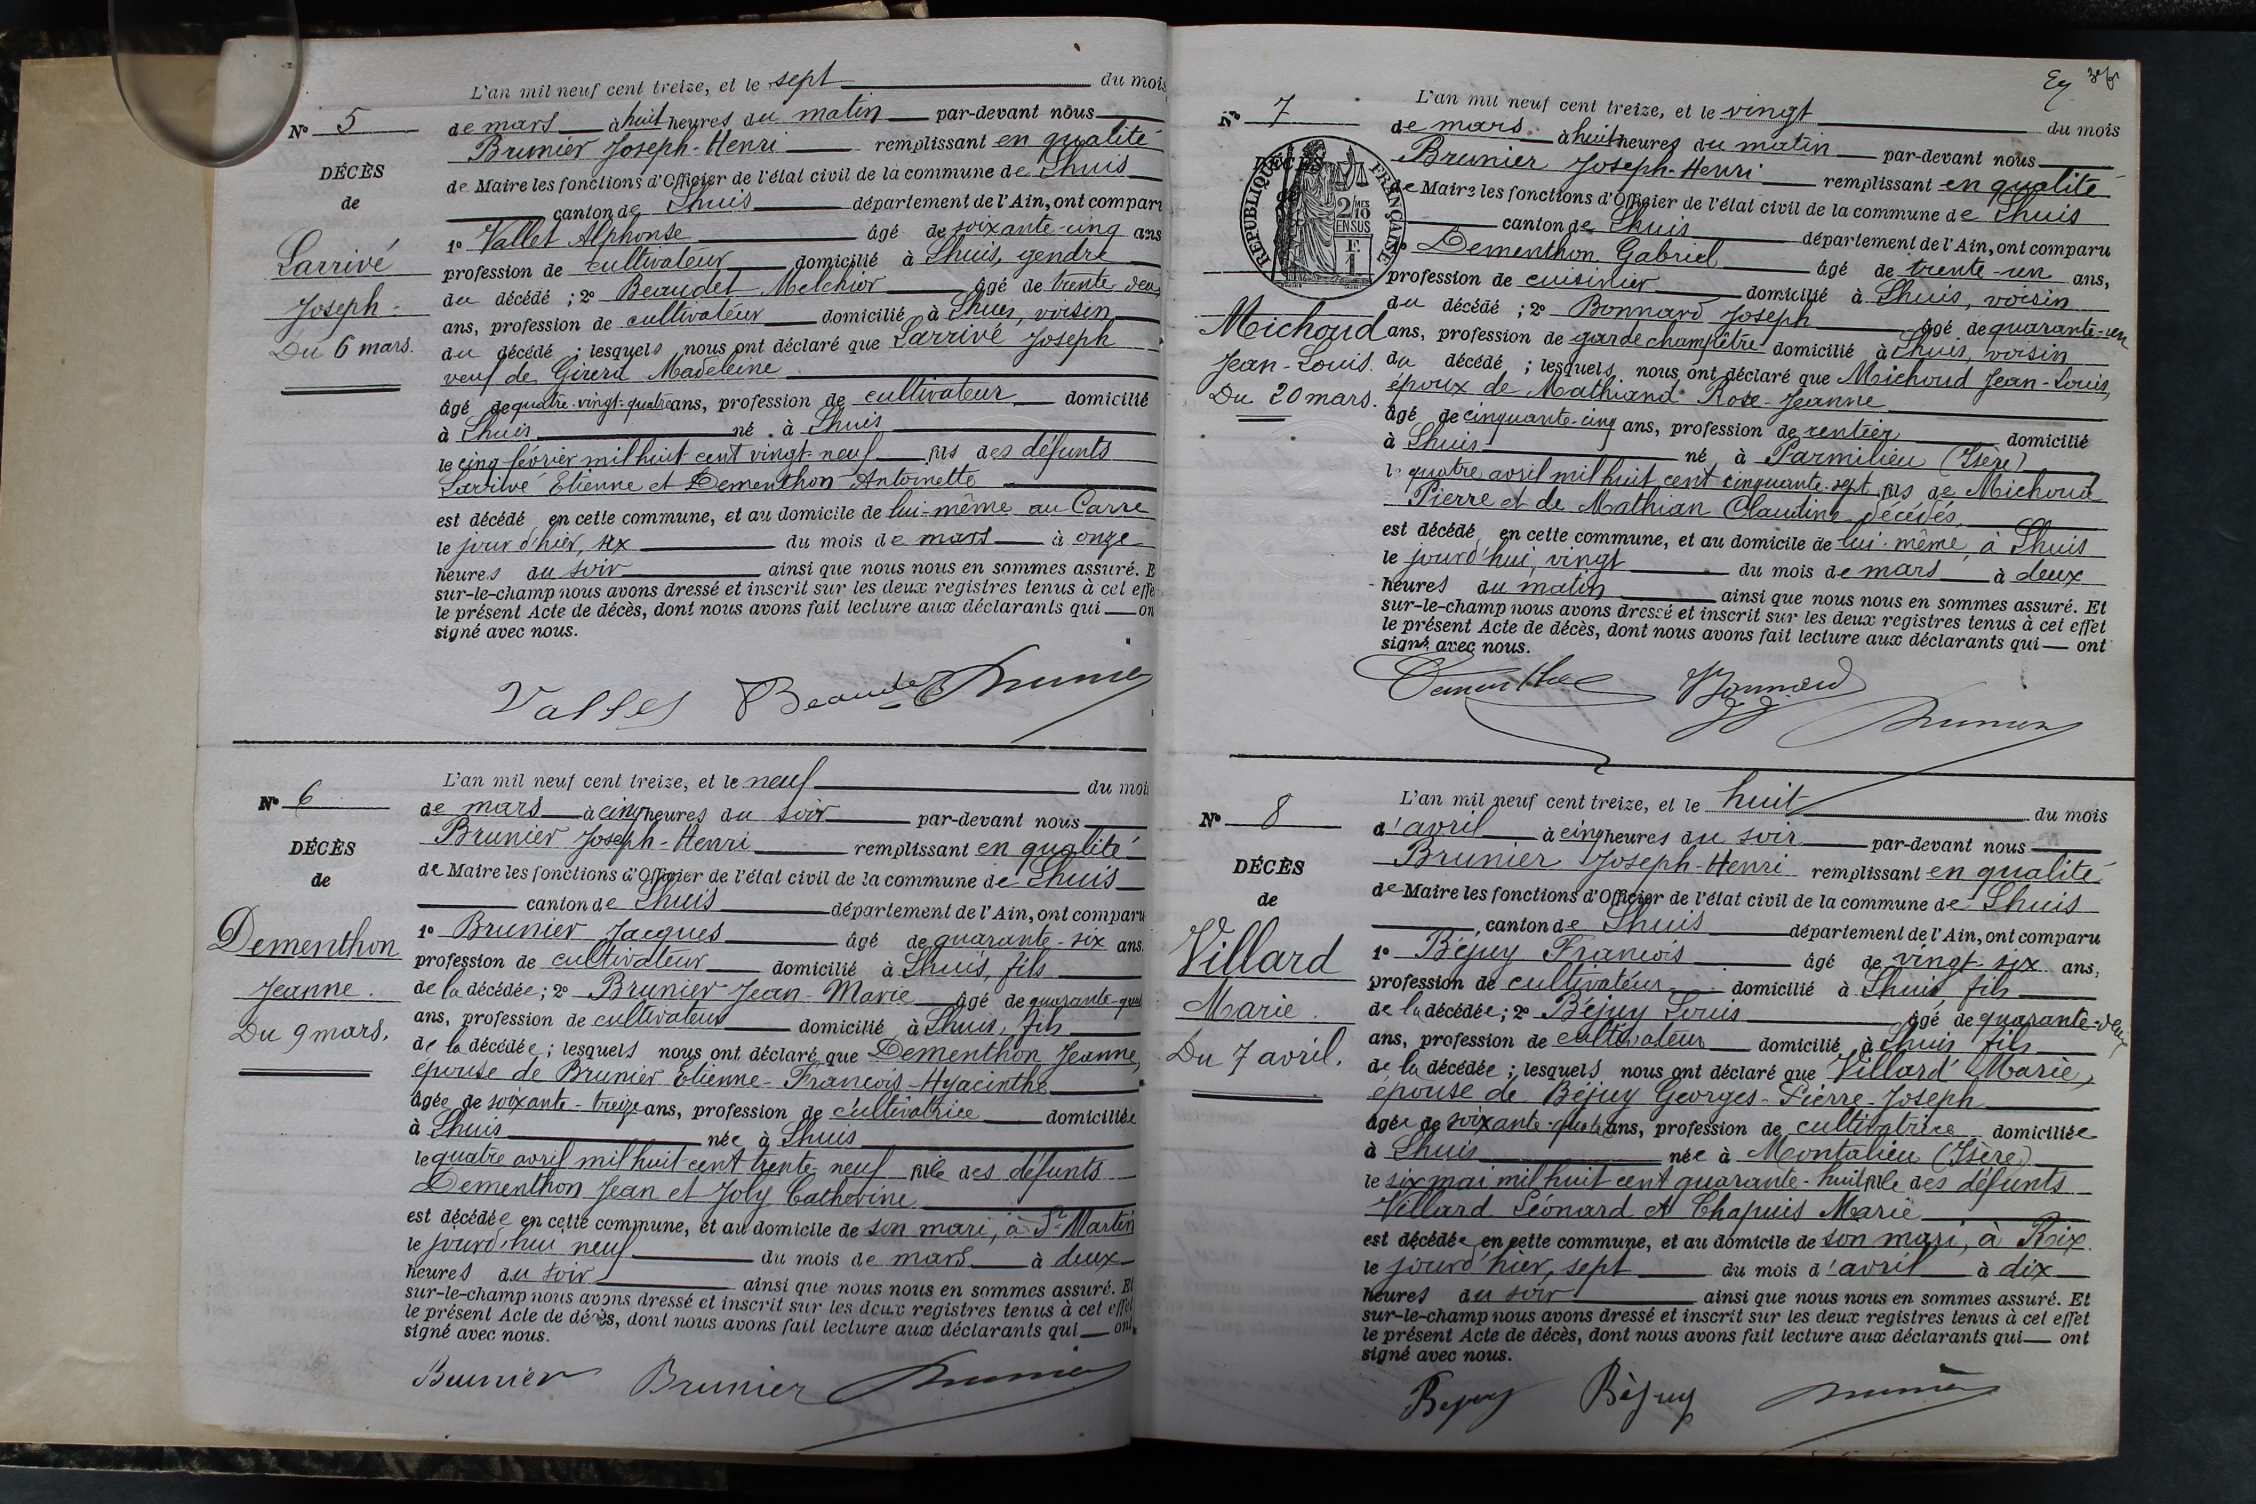 L'an mil neuf cent treize, et le sept du mois
N° 5
de mars à huit heures du matin par-devant nous
Brunier Joseph-Henri remplissant en qualité
DÉCÈS
de Maire les fonctions d'Officier de l'état civil de la commune de Lhuis
de
canton de Lhuis département de l'Ain, ont comparu
1° Vallet Alphonse âgé de soixante-cinq ans
Larrivé
profession de cultivateur domicilié à Lhuis, gendre
du décédé ; 2° Beaudet Melchior âgé de trente deux
Joseph
ans, profession de cultivateur domicilié à Lhuis, voisin
Du 6 mars.
du décédé ; lesquels nous ont déclaré que Larrivé Joseph
veuf de Girerd Madeleine
âgé de quatre-vingt-quatre ans, profession de cultivateur domicilié
à Lhuis né à Lhuis
le cinq février mil huit cent vingt-neuf fils des défunts
Larrivé Etienne et Dementhon Antoinette
est décédé en cette commune, et au domicile de lui-même au Carre
le jour d'hier, six du mois de mars à onze
heures du soir ainsi que nous nous en sommes assuré. E
sur-le-champ nous avons dressé et inscrit sur les deux registres tenus à cet effe
le présent Acte de décès, dont nous avons fait lecture aux déclarants qui on
signé avec nous.
Vallet Beaudet Brunier
L'an mil neuf cent treize, et le neuf du moi
N° 6
de mars à cinq heures du soir par-devant nous
Brunier Joseph-Henri remplissant en qualité
DÉCÈS
de Maire les fonctions d'Officier de l'état civil de la commune de Lhuis
de
canton de Lhuis département de l'Ain, ont comparu
1° Brunier Jacques âgé de quarante-six ans.
Dementhon
profession de cultivateur domicilié à Lhuis, fils
Jeanne.
de la décédée ; 2° Brunier Jean-Marie âgé de quarante-
ans, profession de cultivateur domicilié à Lhuis, fils
Du 9 mars.
de la décédée ; lesquels nous ont déclaré que Dementhon Jeanne,
épouse de Brunier Etienne-François-Hyacinthe
âgée de soixante-treize ans, profession de cultivatrice domiciliée
à Lhuis née à Lhuis
le quatre avril mil huit cent trente-neuf fille des défunts
Dementhon Jean et Joly Catherine
est décédée en cette commune, et au domicile de son mari, à St Martin
le jourd'hui neuf du mois de mars à deux
heures du soir ainsi que nous nous en sommes assuré. Et
sur-le-champ nous avons dressé et inscrit sur les deux registres tenus à cet effet
le présent Acte de décès, dont nous avons fait lecture aux déclarants qui ont
signé avec nous.
Brunier Brunier Brunier
L'an mil neuf cent treize, et le vingt du mois
N° 7
de mars à huit heures du matin par-devant nous
Brunier Joseph-Henri remplissant en qualité
DÉCÈS
RÉPUBLIQUE FRANÇAISE
2/10 MES
EN SUS
de Maire les fonctions d'Officier de l'état civil de la commune de Lhuis
canton de Lhuis département de l'Ain, ont comparu
1° Dementhon Gabriel âgé de trente-un ans,
profession de cuisinier domicilié à Lhuis, voisin
du décédé ; 2° Bonnard Joseph âgé de quarante-un
Michoud
ans, profession de garde champêtre domicilié à Lhuis, voisin
Jean-Louis.
du décédé ; lesquels nous ont déclaré que Michoud Jean-Louis,
Du 20 mars.
époux de Mathiand Rose-Jeanne
âgé de cinquante-cinq ans, profession de rentier domicilié
à Lhuis né à Parmilieu (Isère)
le quatre avril mil huit cent cinquante-sept fils de Michoud
Pierre et de Mathian Claudine décédés
est décédé en cette commune, et au domicile de lui-même, à Lhuis
le jourd'hui, vingt du mois de mars à deux
heures du matin ainsi que nous nous en sommes assuré. Et
sur-le-champ nous avons dressé et inscrit sur les deux registres tenus à cet effet
le présent Acte de décès, dont nous avons fait lecture aux déclarants qui ont
signé avec nous.
Dementhon Bonnard Brunier
L'an mil neuf cent treize, et le huit du mois
N° 8
d'avril à cinq heures du soir par-devant nous
Brunier Joseph-Henri remplissant en qualité
DÉCÈS
de Maire les fonctions d'Officier de l'état civil de la commune de Lhuis
de
canton de Lhuis département de l'Ain, ont comparu
1° Béjuy François âgé de vingt-six ans,
Villard
profession de cultivateur domicilié à Lhuis, fils
Marie.
de la décédée ; 2° Béjuy Louis âgé de quarante-deux
ans, profession de cultivateur domicilié à Lhuis fils
Du 7 avril.
de la décédée ; lesquels nous ont déclaré que Villard Marie,
épouse de Béjuy Georges-Pierre-Joseph
âgée de soixante-quatre ans, profession de cultivatrice domiciliée
à Lhuis née à Montalieu (Isère)
le six mai mil huit cent quarante-huit fille des défunts
Villard Léonard et Chapuis Marie
est décédée en cette commune, et au domicile de son mari, à Rix.
le jourd'hier, sept du mois d'avril à dix
heures du soir ainsi que nous nous en sommes assuré. Et
sur-le-champ nous avons dressé et inscrit sur les deux registres tenus à cet effet
le présent Acte de décès, dont nous avons fait lecture aux déclarants qui ont
signé avec nous.
Bejuy Béjuy Brunier